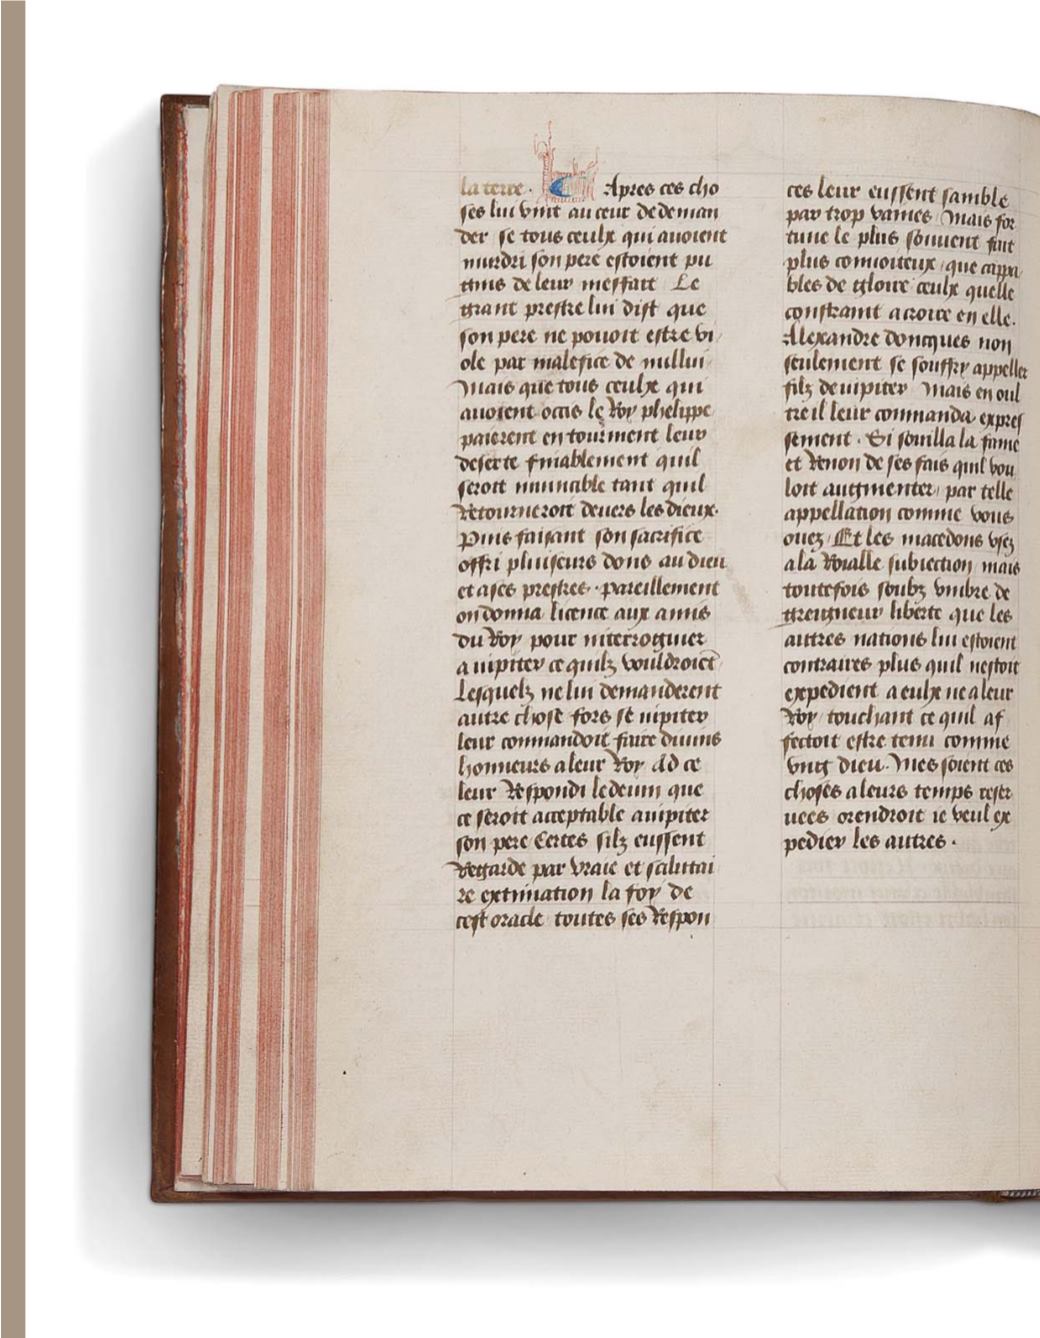 la terre. Apres ces cho
ses lui vint au ceur de deman
der se tous ceulx qui auoient
murdri son pere estoient pu
gnis de leur meffait Le
grant prestre lui dist que
son pere ne pouoit estre vi
ole par malefice de nullui
Mais que tous ceulx qui
auoient occis le Roy phelippe
paierent en tourment leur
deserte finablement quil
seroit inuincible tant quil
Retourneroit deuers les dieux.
Puis faisant son sacrifice
offri pluiseurs dons au dieu
et a ses prestres. pareillement
on donna licence aux amis
du Roy pour interroguier
a iupiter ce quilz vouldroiet
Lesquelz ne lui demanderent
autre chose fors se iupiter
leur commandoit faire diuins
honneurs a leur Roy Ad ce
leur Respondi le deuin que
ce seroit acceptable a iupiter
son pere Certes silz eussent
Regarde par vraie et salutai
re extimation la foy de
cest oracle toutes ses Respon
ces leur eussent samble
par trop vaines Mais for
tune le plus souuent fait
plus conuoiteux que cappa
bles de gloire ceulx quelle
constraint a croire en elle.
Alexandre doncques non
seulement se souffry appeller
filz de iupiter Mais en oul
tre il leur commanda expres
sement. Si souilla la fame
et Renon de ses fais quil vou
loit augmenter par telle
appellation comme vous
ouez Et les macedons vsez
a la Roialle subiection mais
toutefois soubz vmbre de
greigneur liberte que les
autres nations lui estoient
contraires plus quil nestoit
expedient a eulx ne a leur
Roy touchant ce quil af
fectoit estre tenu comme
vng dieu. Mes soient ces
choses a leurs temps reser
uees orendroit ie veul ex
pedier les autres.